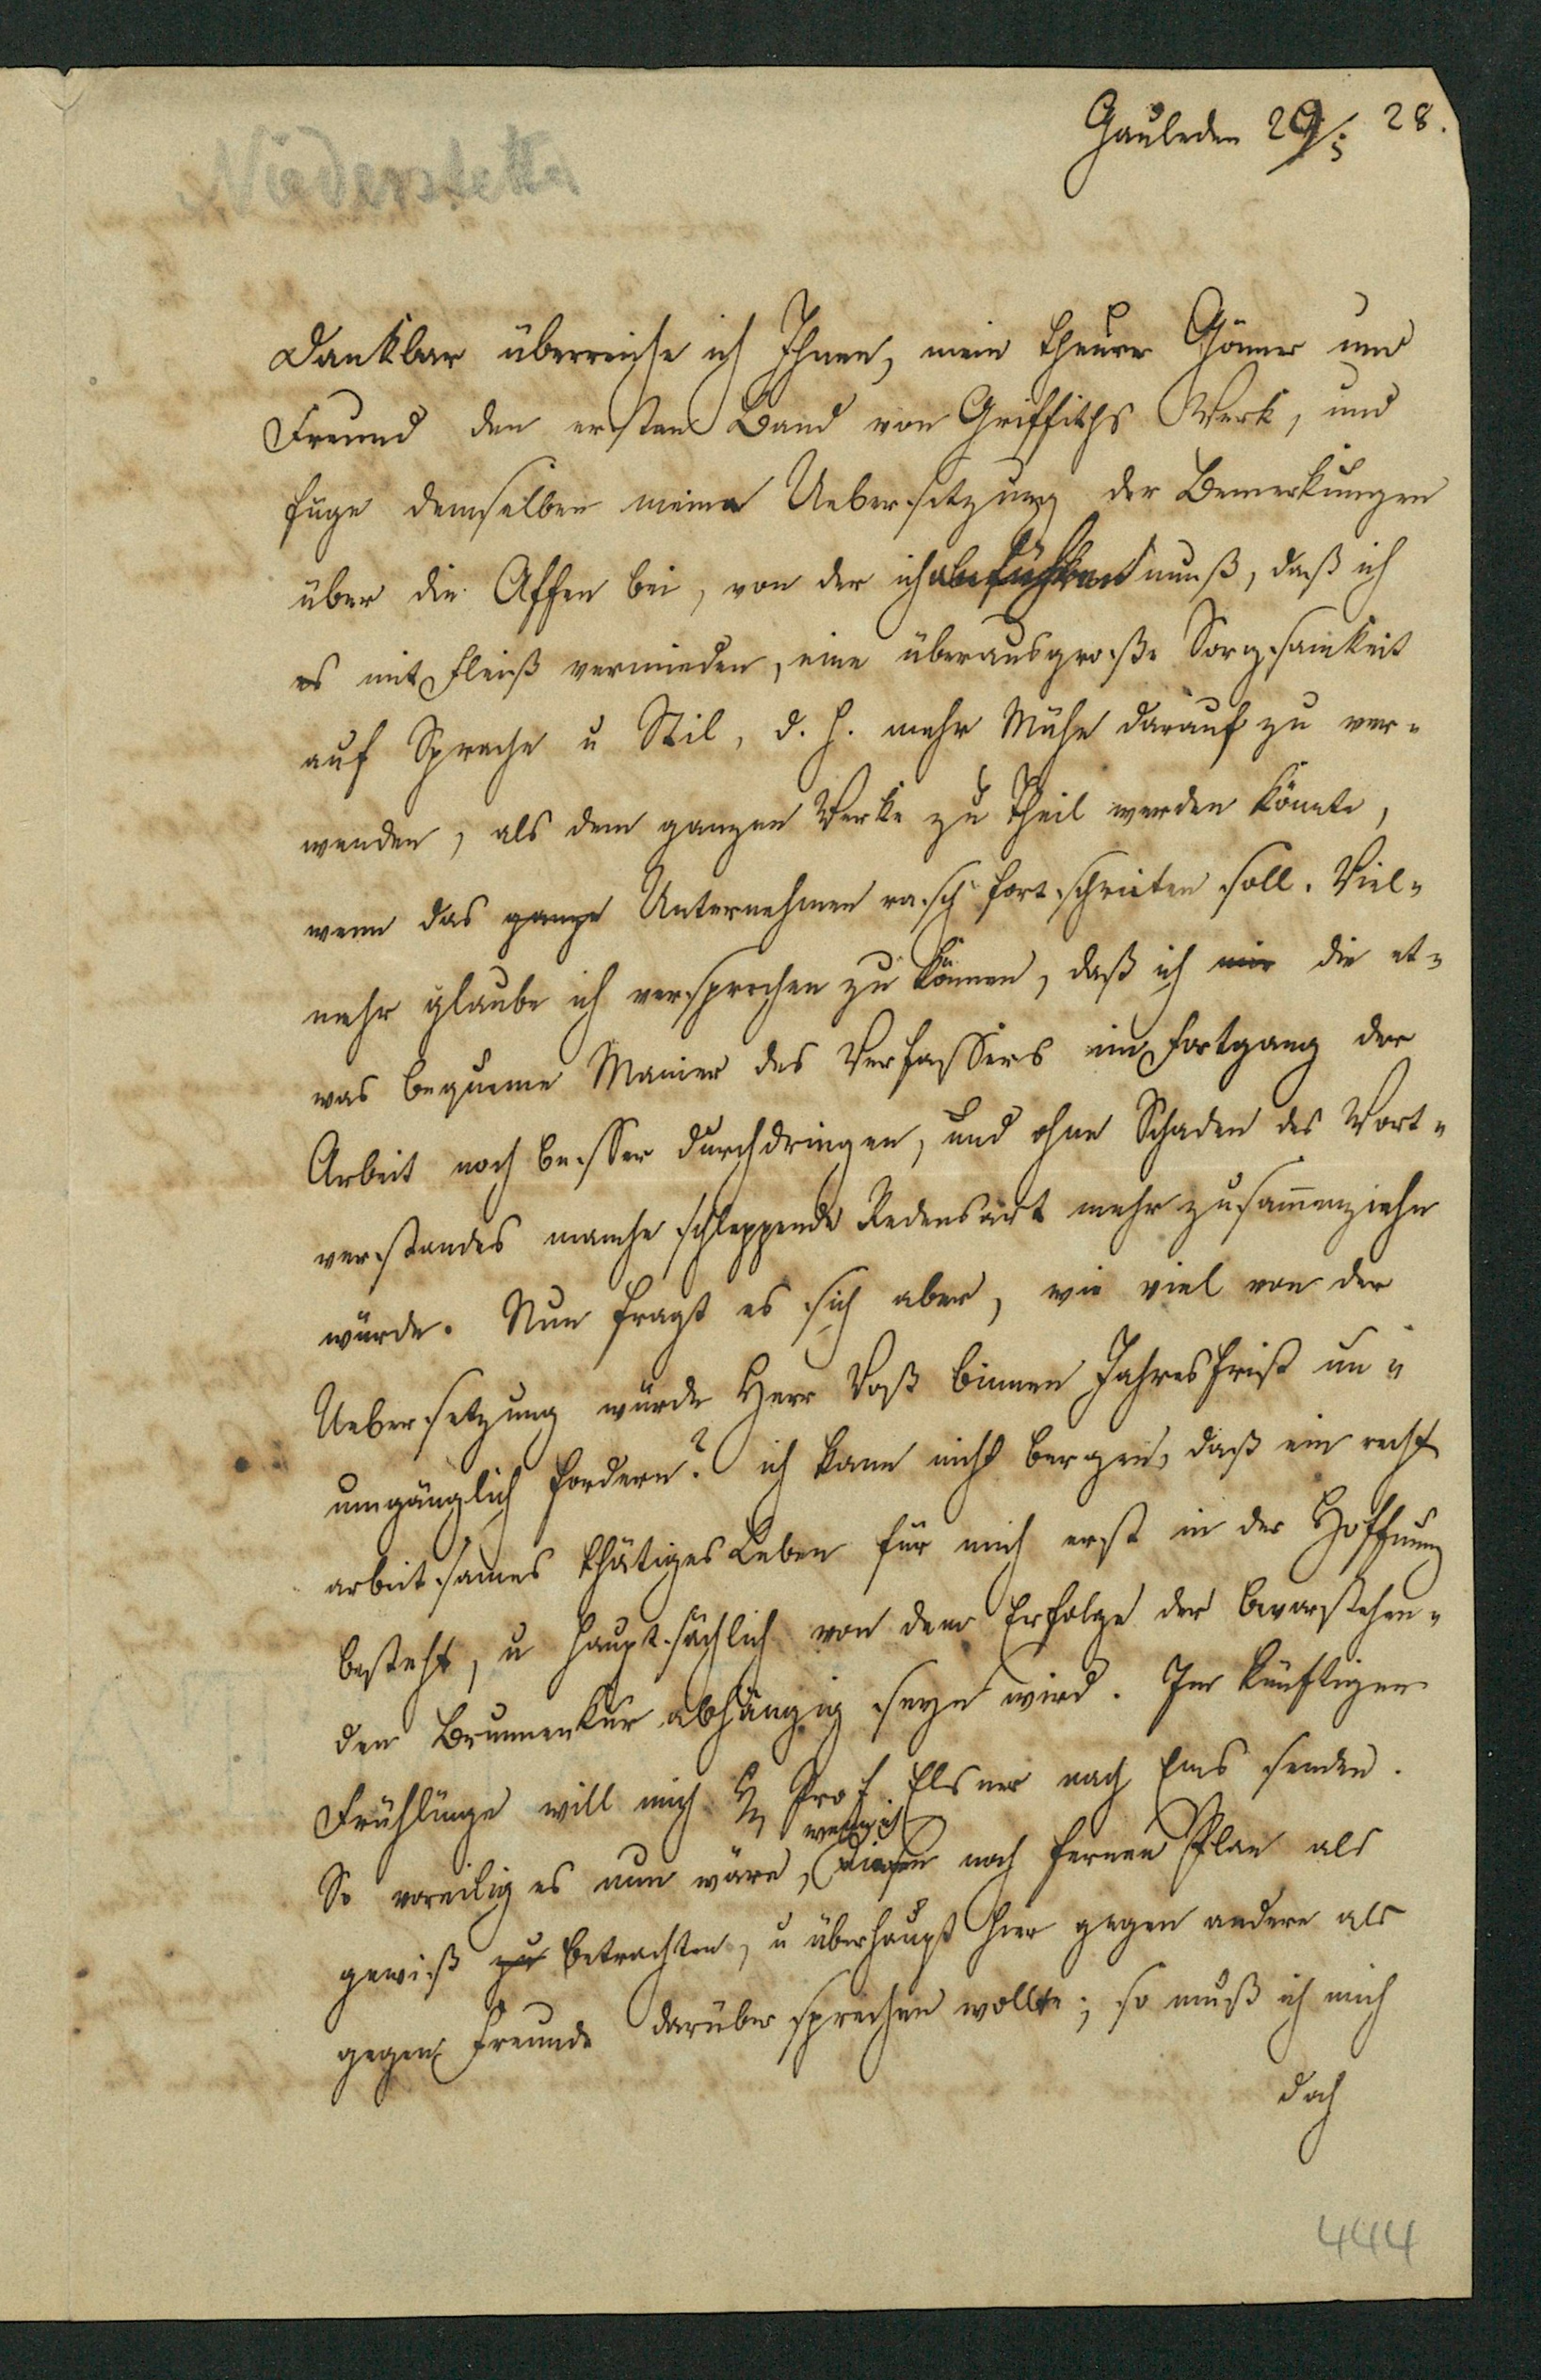 Gauleden 29/5 28.
Niederstetter
Dankbar überreiche ich Ihnen, mein theurer Gönner und
Freund den ersten Band von Griffiths Werk, und
füge demselben meine Uebersetzung der Bemerkungen
über die Affen bei, von der ich muß, daß ich
es mit Fleiß vermieden, eine überausgroße Sorgsamkeit
auf Sprache u Stil, d. h. mehr Mühe darauf zu ver-
wenden, als dem ganzen Werke zu Theil werden könnte,
wenn das ganze Unternehmen rasch fortschreiten soll. Viel-
mehr glaube ich versprechen zu können, daß ich mir die et-
was bequeme Manier des Verfassers im Fortgang der
Arbeit noch besser durchdringen, und ohne Schaden des Wort-
verstandes manche schleppende Redensart mehr zusammenziehn
würde. Nun fragt es sich aber, wie viel von der
Uebersetzung würde Herr Voß binnen Jahresfrist un-
umgänglich fordern? ich kann nicht bergen, daß ein recht
arbeitsames thätiges Leben für mich erst in der Hoffnung
besteht, u hauptsächlich von dem Erfolge der bevorstehen-
den Brunnenkur abhängig seyn wird. Im künftigen
Frühlinge will mich H Prof Elsner nach Ems senden.
So voreilig es nun wäre, wenn ich diesen noch fernen Plan als
gewiß zu betrachten, u überhaupt hier gegen andere als
gegen Freunde darüber sprechen wollte; so muß ich mich
doch
444